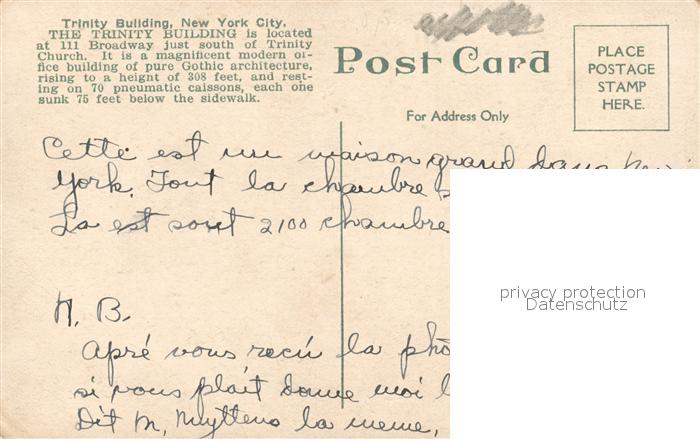 Trinity Building, New York City.
THE TRINITY BUILDING is located
at 111 Broadway just south of Trinity
Church. It is a magnificent modern of-
fice building of pure Gothic architecture,
rising to a heignt of 308 feet, and rest-
ing on 70 pneumatic caissons, each one
sunk 75 feet below the sidewalk.
Post Card
For Address Only
PLACE
POSTAGE
STAMP
HERE.
Cette est un maison grand dans
York. Tout la chambre
La est sont 2100 chambre
privacy protection
Datenschutz
N. B.
Apré vous recu la
si vous plait donne moi
Dit M. Myttens la meme,